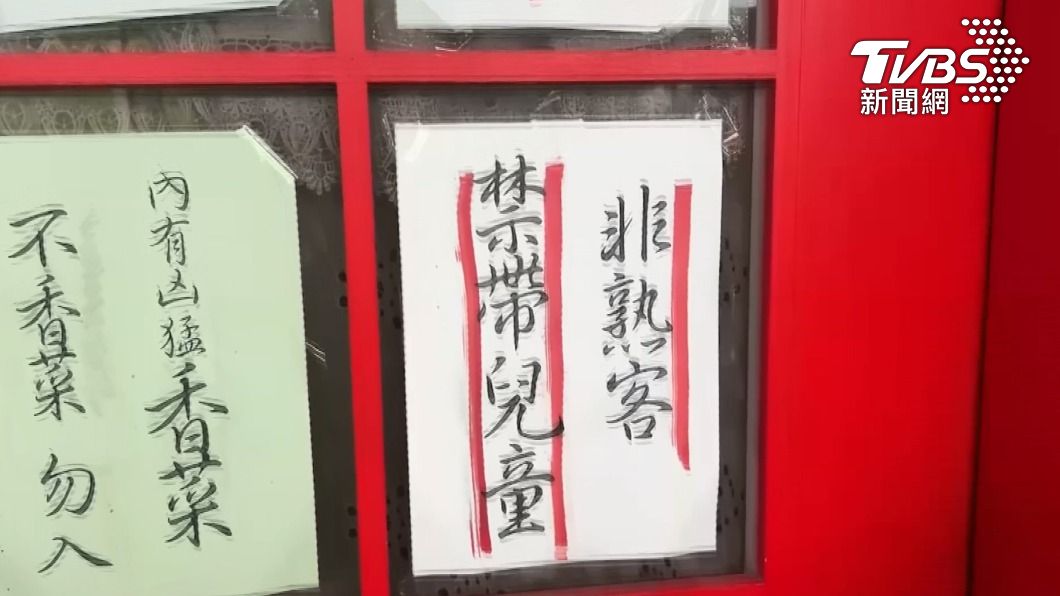 非熟客
禁帶兒童
內有凶猛香菜
不香菜 勿入
TVBS
新聞網